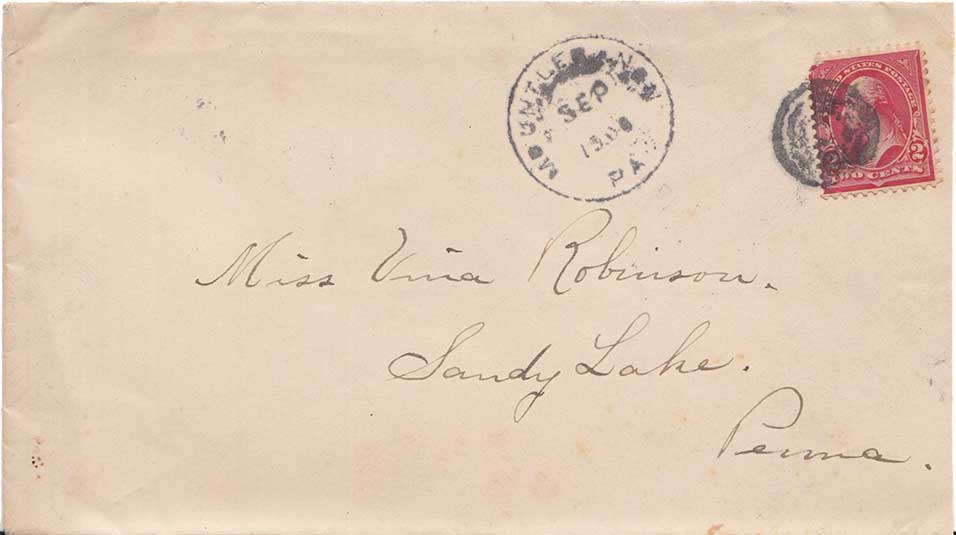 MOUNT LEBANON
SEP
PA
UNITED STATES POSTAGE
2 2
TWO CENTS
Miss Vina Robinson.
Sandy Lake.
Penna.